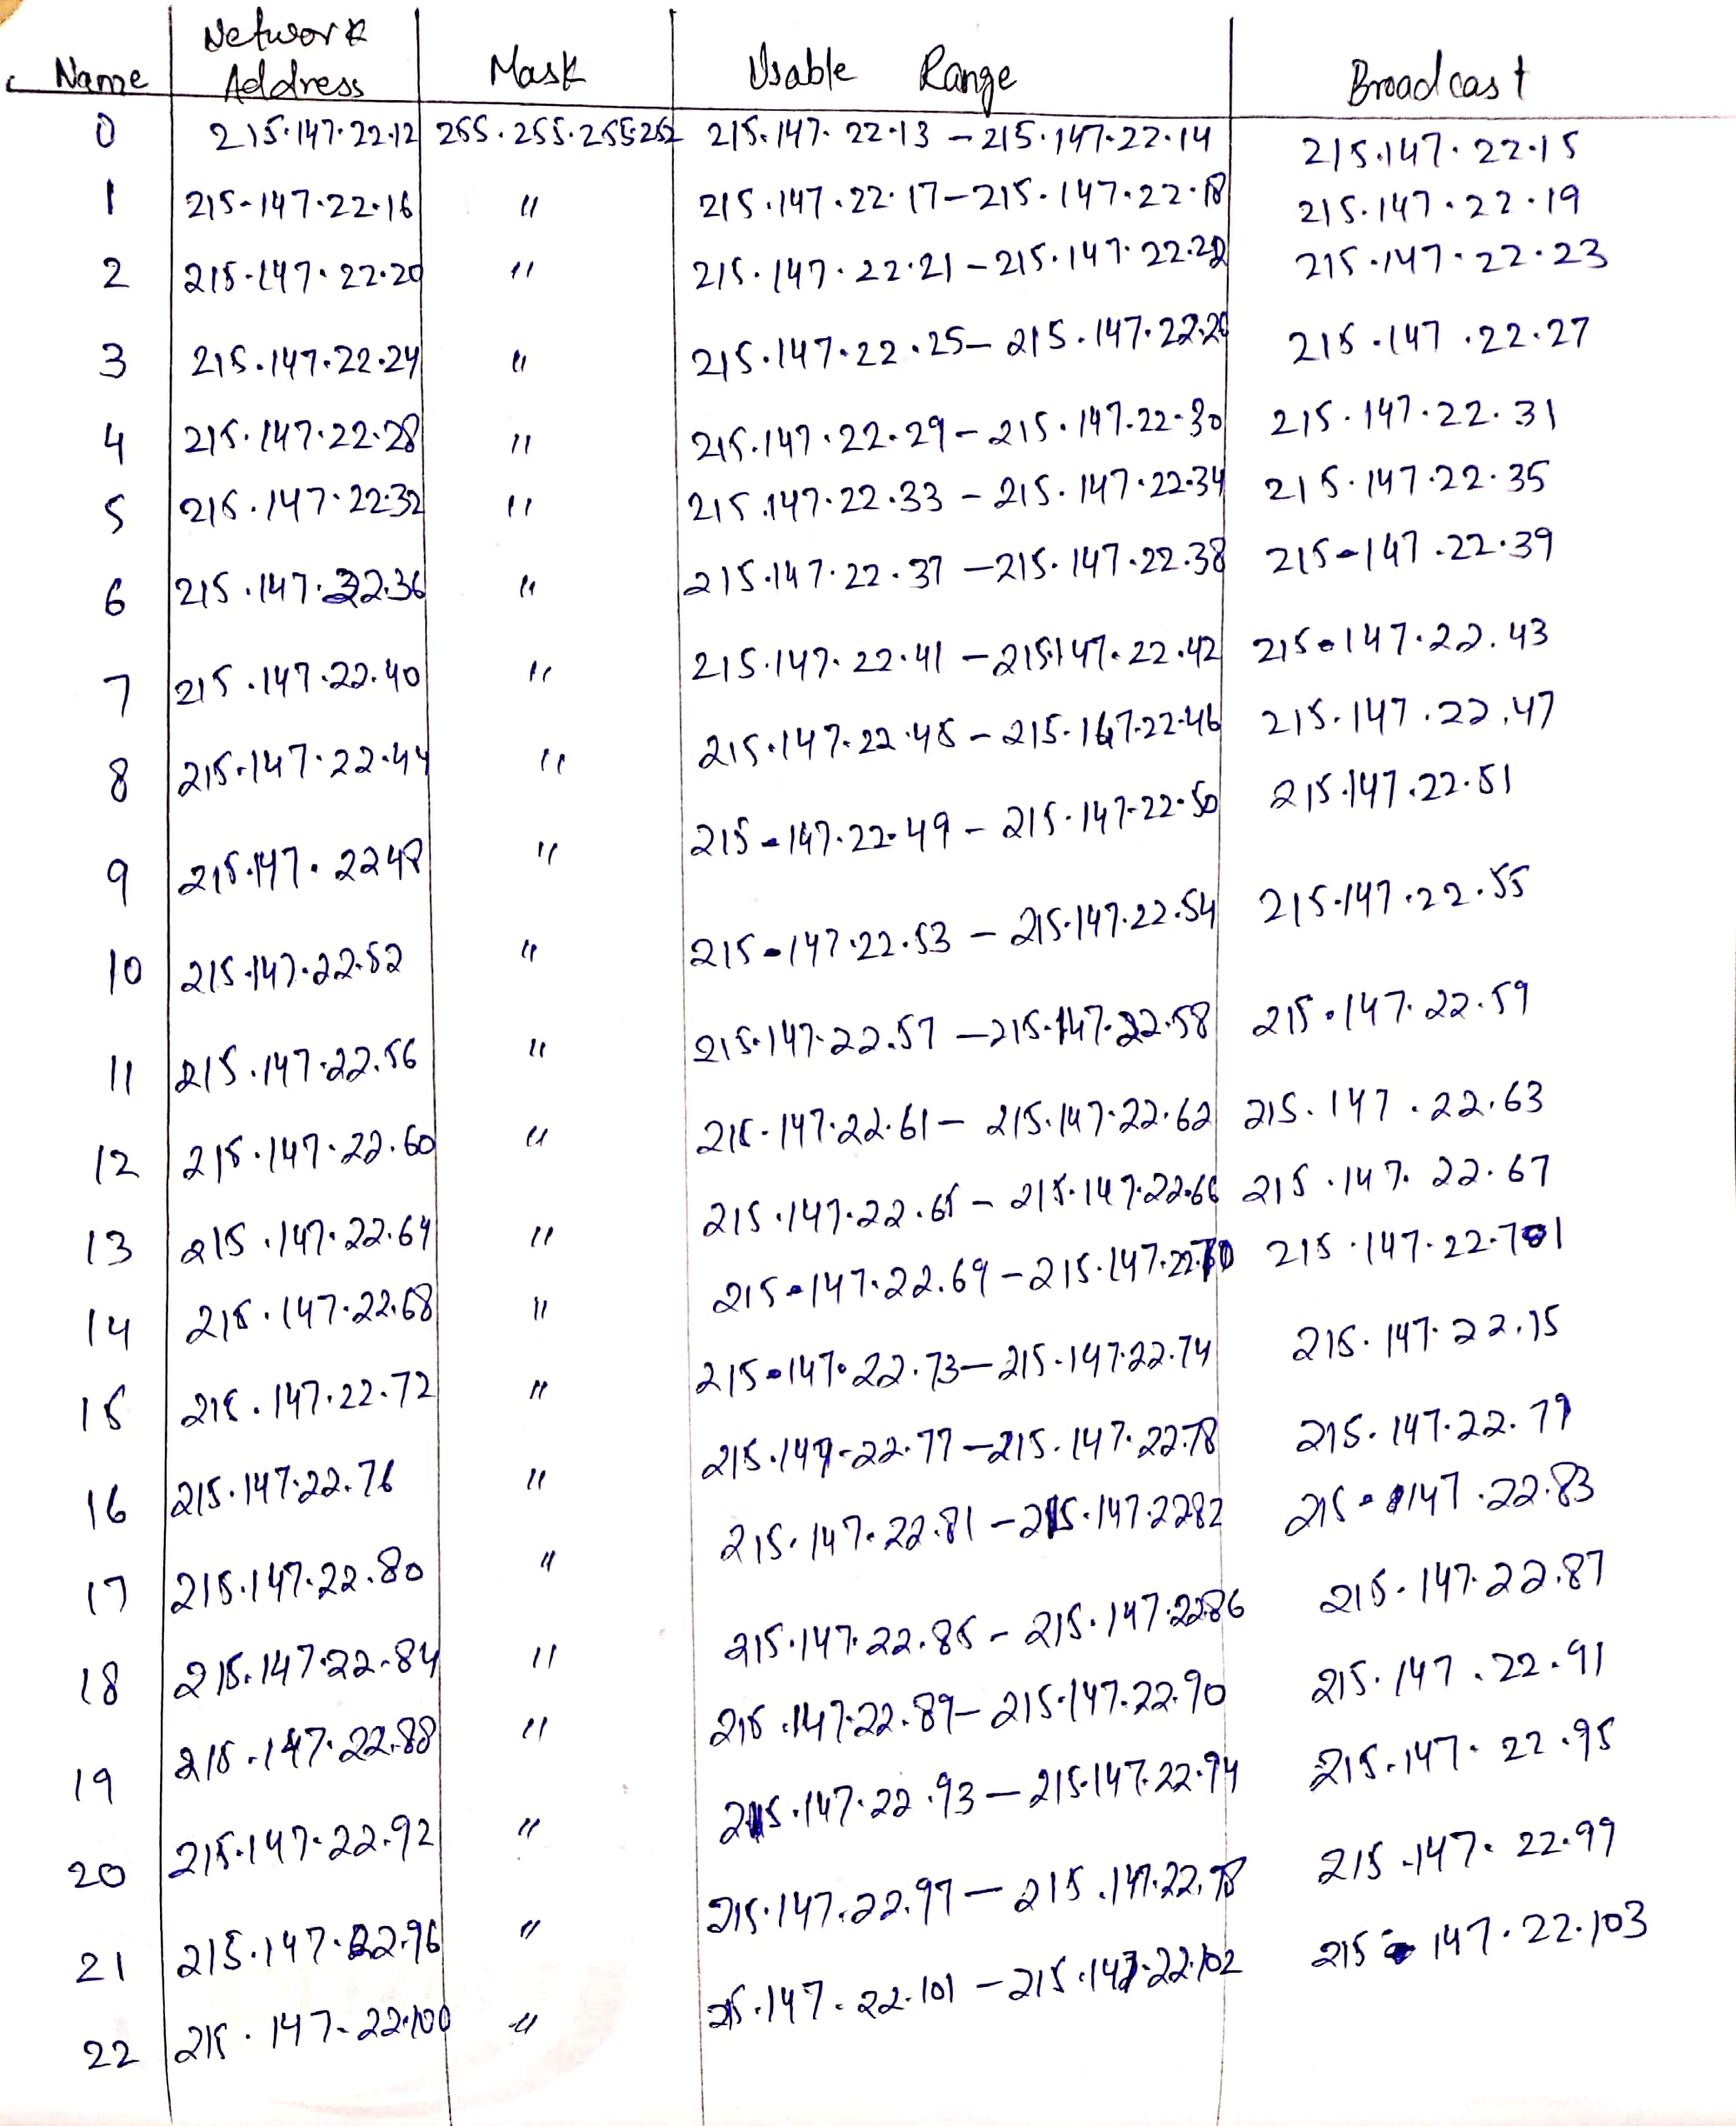 Name Network Address Mask Usable Range Broadcast
0 215.147.22.12 255.255.255.252 215.147.22.13 - 215.147.22.14 215.147.22.15
1 215.147.22.16 " 215.147.22.17 - 215.147.22.18 215.147.22.19
2 215.147.22.20 " 215.147.22.21 - 215.147.22.22 215.147.22.23
3 215.147.22.24 " 215.147.22.25 - 215.147.22.26 215.147.22.27
4 215.147.22.28 " 215.147.22.29 - 215.147.22.30 215.147.22.31
5 215.147.22.32 " 215.147.22.33 - 215.147.22.34 215.147.22.35
6 215.147.22.36 " 215.147.22.37 - 215.147.22.38 215.147.22.39
7 215.147.22.40 " 215.147.22.41 - 215.147.22.42 215.147.22.43
8 215.147.22.44 " 215.147.22.45 - 215.147.22.46 215.147.22.47
9 215.147.2248 " 215.147.22.49 - 215.147.22.50 215.147.22.51
10 215.147.22.52 " 215.147.22.53 - 215.147.22.54 215.147.22.55
11 215.147.22.56 " 215.147.22.57 - 215.147.22.58 215.147.22.59
12 215.147.22.60 " 215.147.22.61 - 215.147.22.62 215.147.22.63
13 215.147.22.64 " 215.147.22.65 - 215.147.22.66 215.147.22.67
14 215.147.22.68 " 215.147.22.69 - 215.147.22.70 215.147.22.71
15 215.147.22.72 " 215.147.22.73 - 215.147.22.74 215.147.22.75
16 215.147.22.76 " 215.147.22.77 - 215.147.22.78 215.147.22.79
17 215.147.22.80 " 215.147.22.81 - 215.147.2282 215.147.22.83
18 215.147.22.84 " 215.147.22.85 - 215.147.22.86 215.147.22.87
19 215.147.22.88 " 215.147.22.89 - 215.147.22.90 215.147.22.91
20 215.147.22.92 " 215.147.22.93 - 215.147.22.94 215.147.22.95
21 215.147.22.96 " 215.147.22.97 - 215.147.22.98 215.147.22.99
22 215.147.22.100 " 215.147.22.101 - 215.147.22.102 215.147.22.103